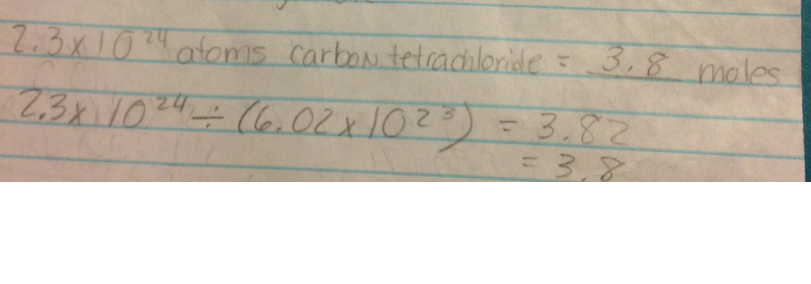 2.3x10²⁴ atoms carbon tetrachloride = 3.8 moles
2.3x10²⁴ ÷ (6.02x10²³) = 3.82
= 3.8